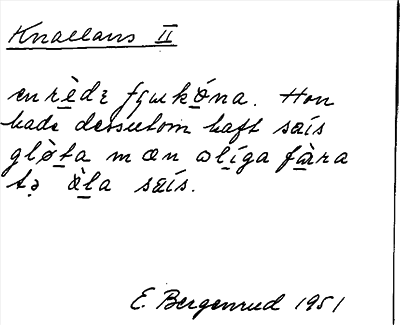 Knallans II
en rèdz fjukóna. Hon
hade dessutom haft sæís
gløta mæn ɷlíga fàra
tə àla sæís.
E. Bergenrud 1951